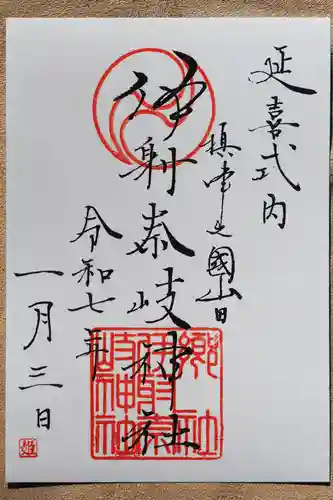 延喜式内
摂津之國山田
伊射奈岐神社
令和七年
一月三日